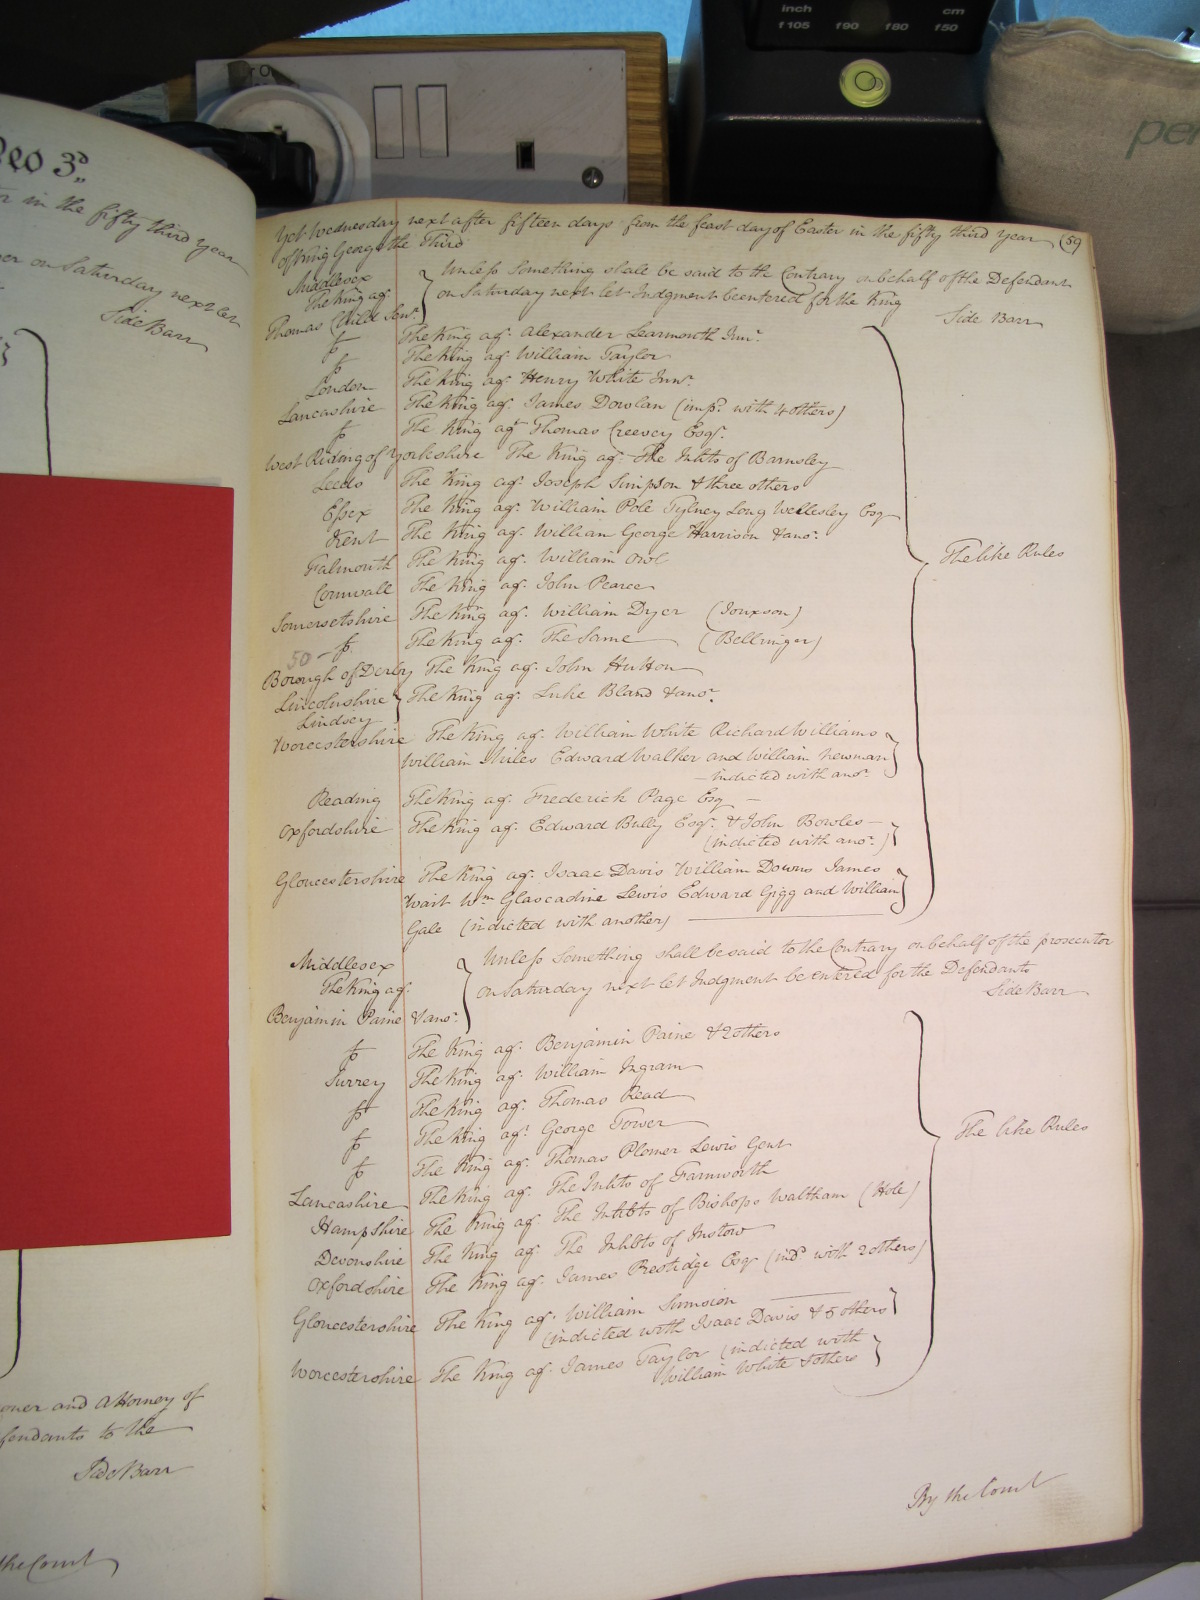 inch
cm
f105 f90 f80 f50
per
Geo 3d.
in the fifty third year
on Saturday next let
Side Barr
and Attorney of
to the
Side Barr
the Court
Yet Wednesday next after fifteen days from the feast day of Easter in the fifty third year (59
of King George the Third
Middlesex
The King agt.
Thomas Wild Senr.
Unless Something shall be said to the Contrary on behalf of the Defendant
on Saturday next let Judgment be entered for the King
Side Barr
The King agt. Alexander Learmonth Junr.
The King agt. William Taylor
London The King agt. Henry White Junr.
Lancashire The King agt. James Dowlan (impd. with 4 others)
The King agt. Thomas Creevey Esqr.
West Riding of Yorkshire The King agt. The Inhbts of Barnsley
Leeds The King agt. Joseph Simpson & three others
Essex The King agt. William Pole Tylney Long Wellesley Esq
Kent The King agt. William George Harrison & anor.
Falmouth The King agt. William Owl
Cornwall The King agt. John Pearce
Somersetshire The King agt. William Dyer (Jouxson)
50 The King agt. The Same (Bellringer)
Borough of Derby The King agt. John Hutton
Lincolnshire The King agt. Luke Bland & anor.
Lindsey
Worcestershire The King agt. William White Richard Williams
William Stiles Edward Walker and William Newman
indicted with anor.
Reading The King agt. Frederick Page Esq
Oxfordshire The King agt. Edward Bully Esqr. & John Bowles
(indicted with anor.)
Gloucestershire The King agt. Isaac Davis William Downs James
Wait Wm Glascodine Lewis Edward Gigg and William
Gale (indicted with another)
The like Rules
Middlesex
The King agt.
Benjamin Paine & anor.
Unless Something shall be said to the Contrary on behalf of the prosecutor
on Saturday next let Judgment be entered for the Defendants
Side Barr
The King agt. Benjamin Paine & 2 others
Surrey The King agt. William Ingram
The King agt. Thomas Read
The King agt. George Tower
The King agt. Thomas Plomer Lewis Gent
Lancashire The King agt. The Inhbts of Farnworth
Hampshire The King agt. The Inhbts of Bishops Waltham (Hole)
Devonshire The King agt. The Inhbts of Instow
Oxfordshire The King agt. James Prestidge Esqr (indd. with 2 others)
Gloucestershire The King agt. William Simsion
(indicted with Isaac Davis & 5 others
Worcestershire The King agt. James Taylor (indicted with
William White & others
The like Rules
By the Court